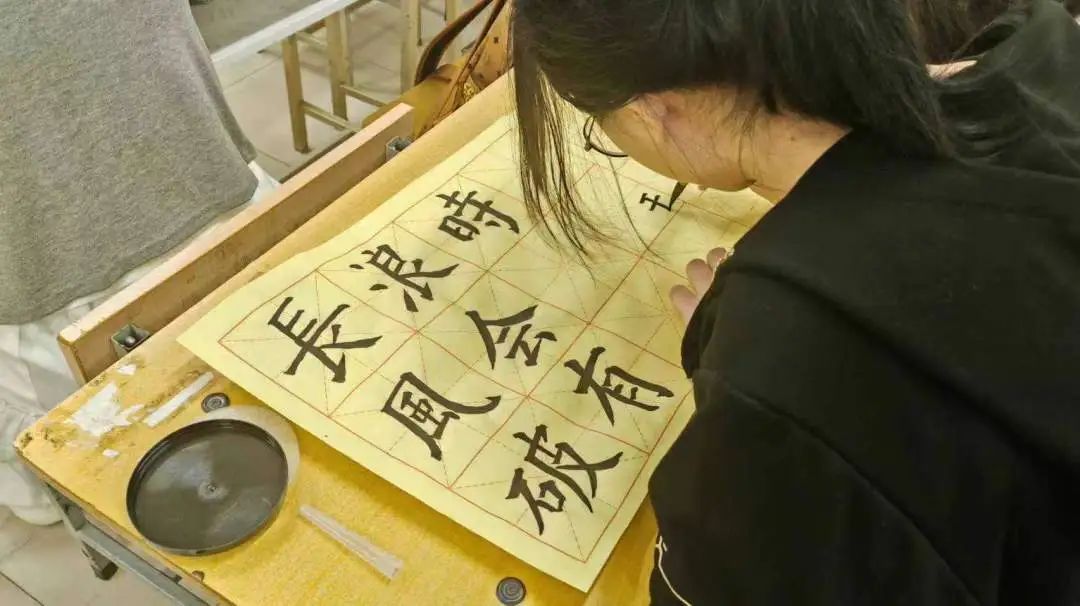 長風破
浪会有
時